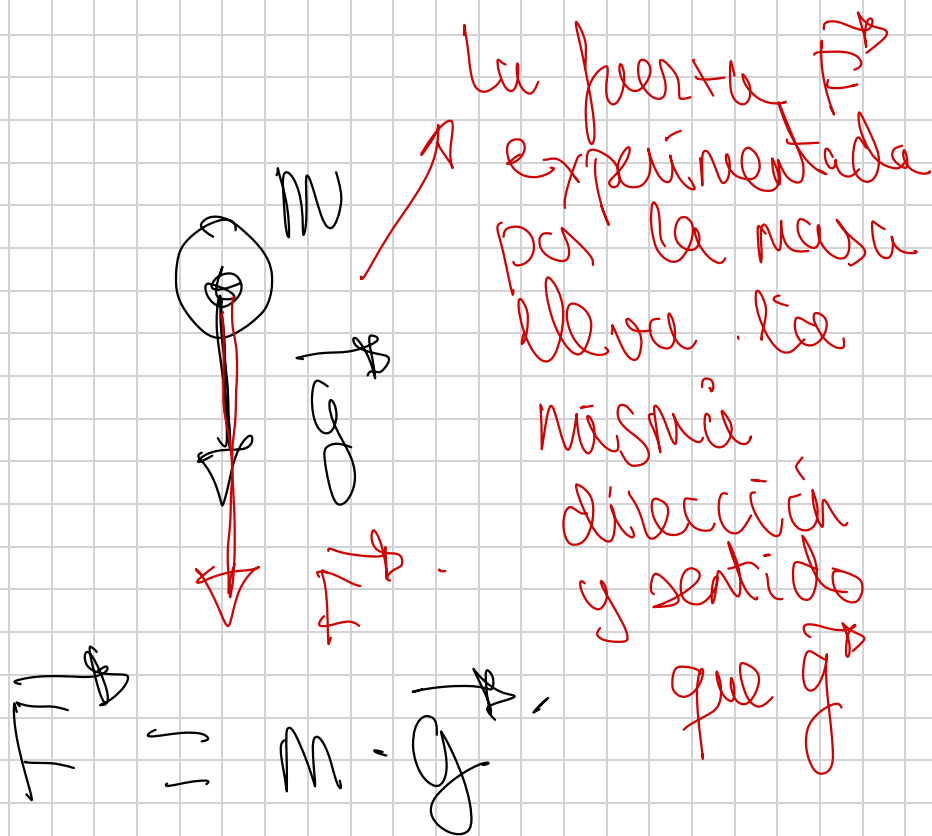 La fuerza F⃗
experimentada
por la masa
lleva la
misma
dirección
y sentido
que g⃗
m
g⃗
F⃗
F⃗ = m · g⃗.